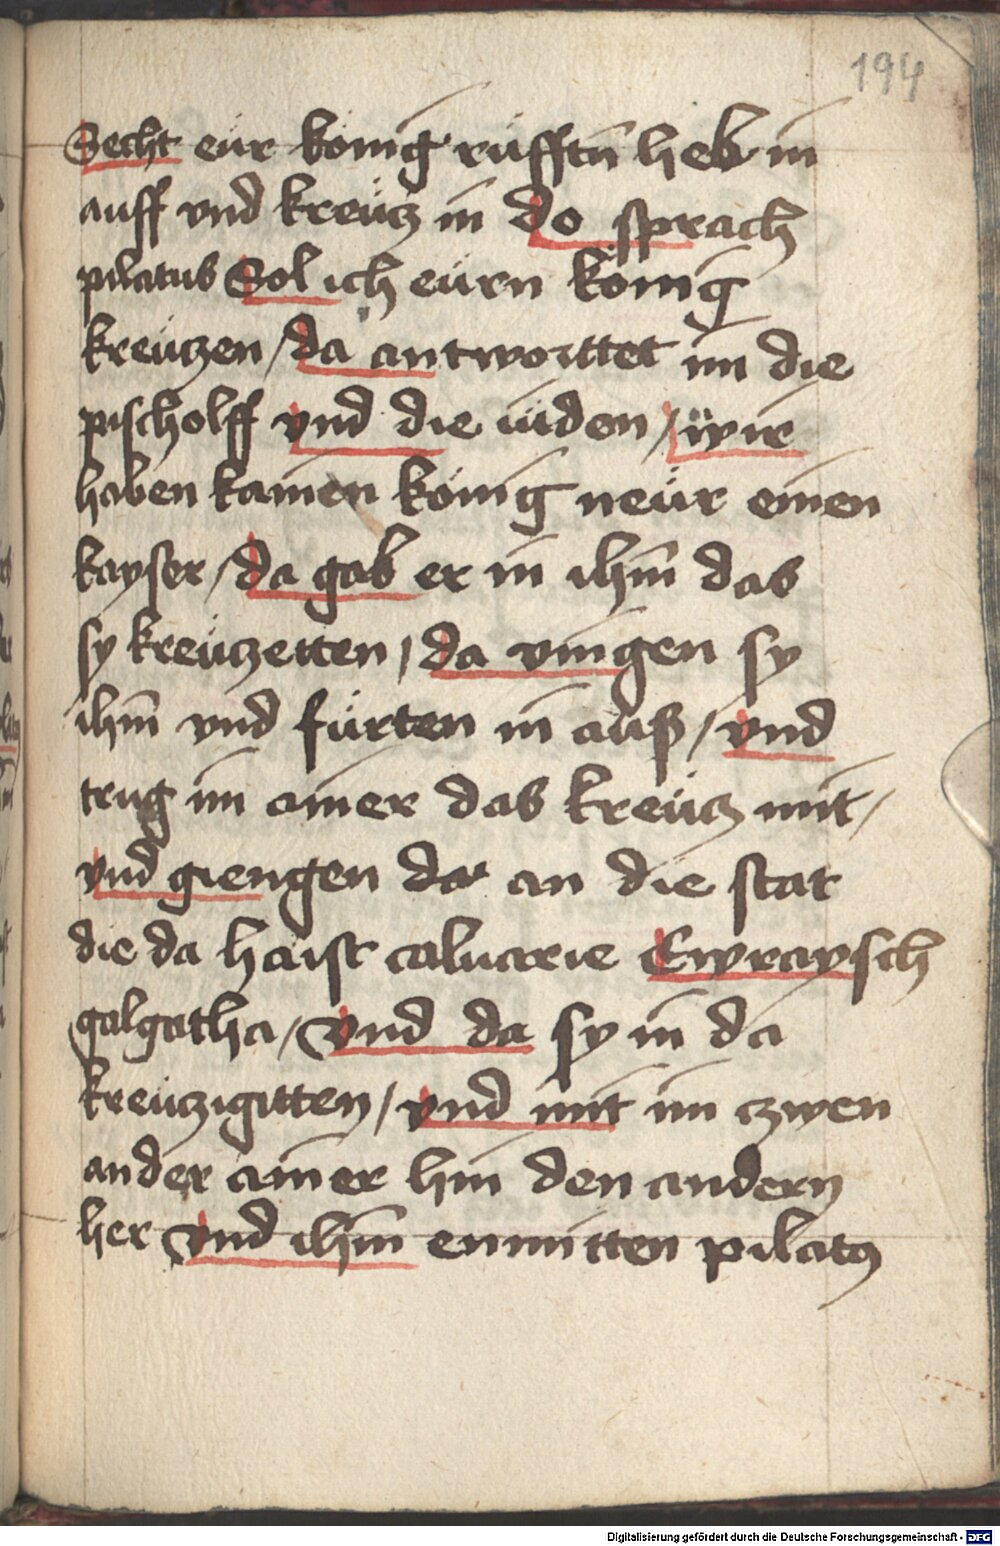 194
Secht eür könig rüfften heb in
auff vnd kreütz in do sprach
pilatus Sol ich eürn könig
kreützen / da antworttet im die
pischolff vnd die iüden / wir
haben kainen könig neür einen
kayser / da gab er in ihm̄ das
sy kreützetten / da vingen sy
ihm̄ vnd fürten in auß / vnd
trug im ainer das kreütz mit /
vnd giengen dar an die stat
die da haist caluarie Ewraysch
galgatha / Vnd da sy in da
kreützigitten / vnd mit im zwen
ander ainer hin den andern
her vnd ihm̄ enmitten pilatꝰ
Digitalisierung gefördert durch die Deutsche Forschungsgemeinschaft - DFG